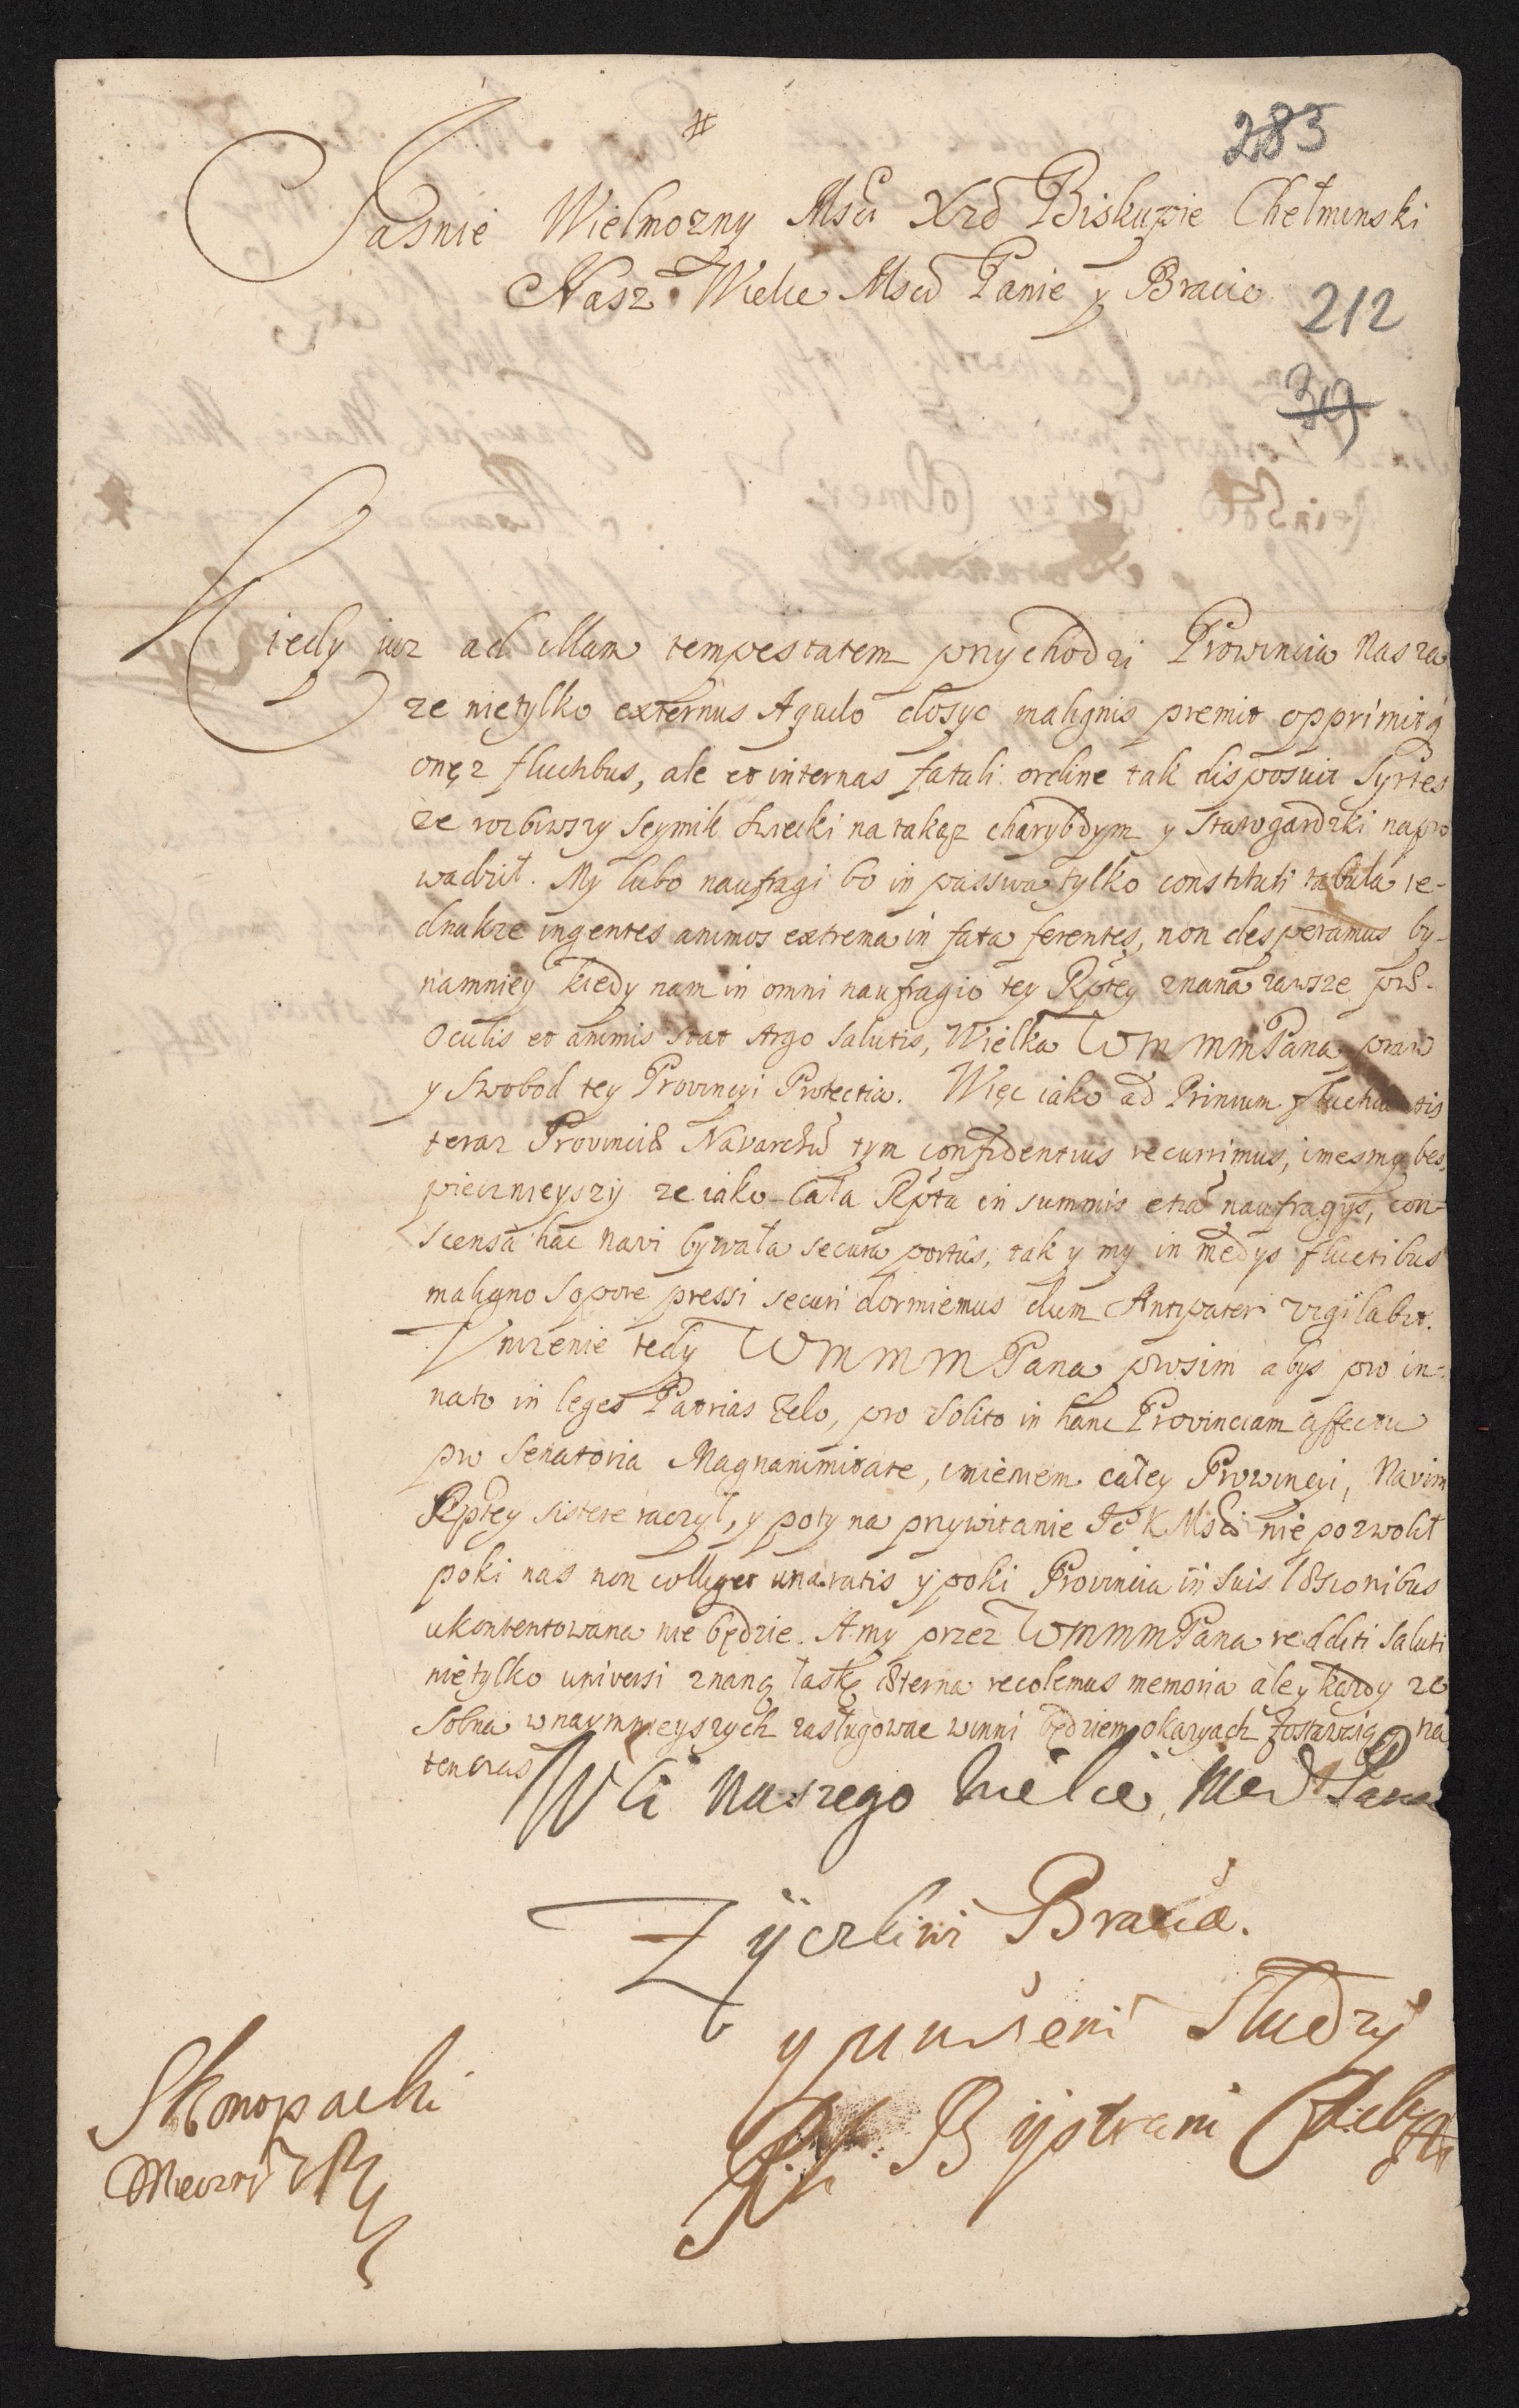 #
283
Jasnie Wielmozny Mscu Xzd Biskupie Chełminski
Nasz Wielce Mscu Panie y Bracie
212
39
Kiedy iuz ad illam tempestatem przychodzi Prowincia nasza
ze nietylko externus Aquilo dosyc malignis premit opprimitq
onęz fluctibus, ale et internas fatali ordine tak disposuit Syrtes
ze rozbiwszy Seymik Swiecki na takąz charybdym y Starogardzki napro
wadził. My lubo naufragi bo in passiva tylko constituti tabula ie-
dnakze ingentes animos extrema in fata ferentes, non desperamus by-
namniey kiedy nam in omni naufragio tey Rptey znana zawsze prae
Oculis et animis stat Argo salutis, Wielka WMMMPana praw
y Swobod tey Provincyi Protectia. Więc iako ad Primum fluctuantis
teraz Provinciae Navarchu tym confidentius recurrimus, imesmy bes,
piecznieyszy ze iako cała Rpta in summis etia naufragys, con-
scensa hac navi bywała secura portus, tak y my in medys fluctibus
maligno sopore pressi securi dormiemus dum Antipater vigilabit.
Vnizenie tedy WMMMPana prosim abys pro in-
nato in leges Patrias Zelo, pro solito in hanc Provinciam affectu
pro Senatoria Magnanimitate, imieniem całey Prowincyi, Navim
Rptey sistere raczył, y poty na przywitanie Je K Msci nie pozwolił
poki nas non colliget una ratis y poki Provincia in suis laesionibus
ukontentowana nie będzie. A my przez WMMMPana redditi saluti
nietylko universi znaną łaskę aeterna recolemus memoria ale y kazdy ze
sobna w naymnieyszych zasługowac winni będziem okazyach zostawaiąc na
tenczas
WM naszego Wielce Mscu Pana
Zÿczliwi Bracia.
y unizeni Słudzÿ
Bÿstram
SKonopacki
Mieczni